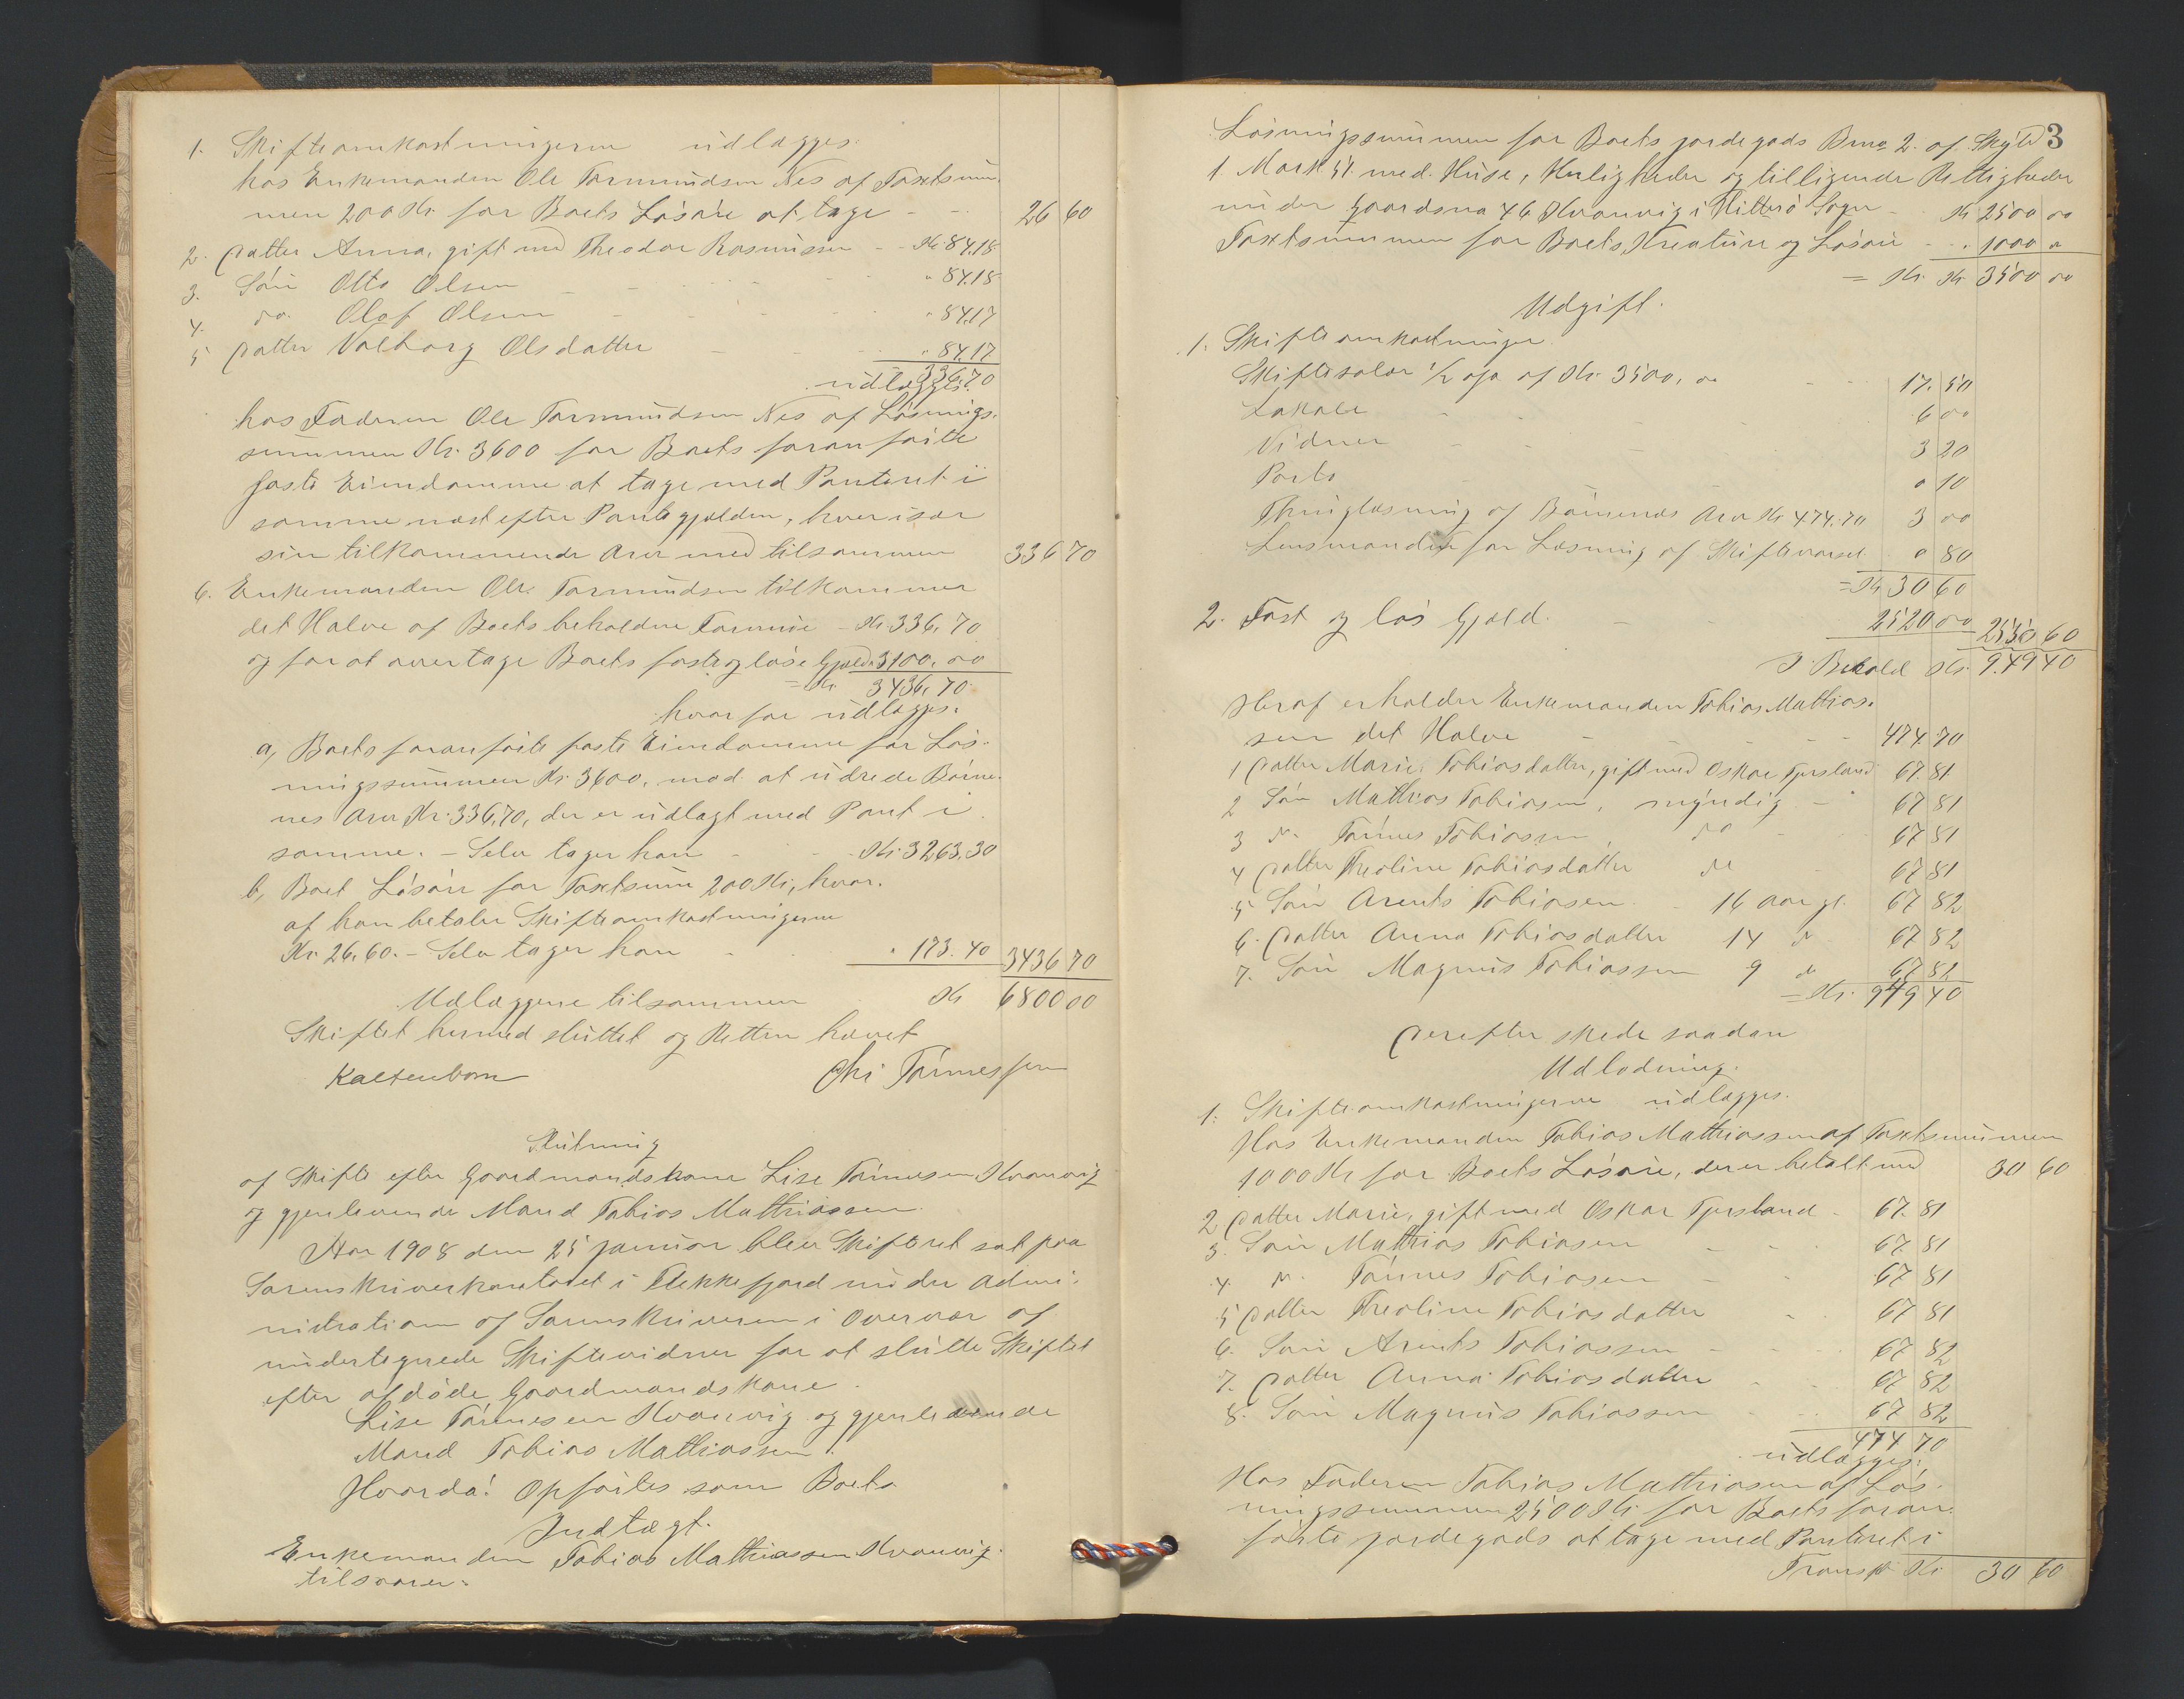 1. Skifteomkostningerne udlægges.
hos Enkemanden Ole Tormundsen Nes af Taxtsum-
men 200 Kr. for Boets Løsøre at tage - - 26 60
2. Datter Anna, gift med Theodor Rasmussen - - Kr 84.18
3. Søn Otto Olsen - - - " 84.18
4. do. Olaf Olsen - - - " 84.17
5 Datter Valborg Olsdatter - - " 84.17
336.70
udlægges.
hos Faderen Ole Tormundsen Nes af Løsnings-
summen Kr. 3600 for Boets foranførte
faste Eiendomme at tage med Panteret i
samme næst efter Pantegjælden, hver især
sin tilkommende Arv med tilsammen 336 70
6. Enkemanden Ole Tormundsen tilkommer
det Halve af Boets beholdne Formue - Kr. 336,70
og for at overtage Boets faste og løse Gjæld " 3100,00
= Kr. 3436,70
hvorfor udlægges.
a, Boets foranførte faste Eiendomme for Løs-
ningssummen Kr. 3600, mod at udrede Børne-
nes Arv Kr. 336,70, der er udlagt med Pant i
samme. - Selv tager han - - Kr. 3263,30
b, Boet Løsøre for Taxtsum 200 Kr., hvor-
af han betaler Skifteomkostningerne
Kr. 26,60. - Selv tager han - " 173.40 3436 70
Udlæggene tilsammen Kr 6800 00
Skiftet hermed sluttet og Retten hævet
Kaltenborn Chr Tønnessen
Slutning
af Skifte efter Gaardmandskone Lise Tønnesen Kvanvig
og gjenlevende Mand Tobias Mathiassen.
Aar 1908 den 25 januar blev Skifteret sat paa
Sorenskriverkontoret i Flekkefjord under Admi-
nistration af Sorenskriveren i Overvær af
undertegnede Skiftevidner for at slutte Skiftet
efter afdøde Gaardmandskone
Lise Tønnesen Kvanvig og gjenlevende
Mand Tobias Mathiassen.
Hvorda! Opførtes som Boets
Indtægt.
Enkemanden Tobias Mathiassen Kvanvig.
tilsvarer.
3
Løsningssummen for Boets jordegods Bruno 2. af Skyld
1. Mark 51. med Huse, Herligheder og tilligende Rettigheder
under Gaardsno 46 Kvanvig i Hitterø Sogn - Kr 2500 00
Taxtsummen for Boets Kreature og Løsøre - " 1000 "
= Kr. Kr 3500 00
Udgift.
1. Skifteomkostninger
Skiftesalær 1/2 o/o af Kr. 3500, 00 - - 17. 50
Lokale - - 6 00
Vidner - - 3 20
Porto - 0 10
Thinglæsning af Børnenes Arv Kr 474.70 3 00
Lensmanden for Læsning af Skiftevarsel 0 80
= Kr 30 60
2. Fast og løs Gjæld. - - 2520 00 2550 60
I Behold Kr. 949 40
Heraf erholder Enkemanden Tobias Mathias-
sen det Halve - - 474.70
1 Datter Marie Tobiasdatter, gift med Oskar Tjersland 67.81
2 Søn Mathias Tobiasen, myndig - 67 81
3 do. Tønnes Tobiassen do - 67 81
4 Datter Theoline Tobiasdatter do - 67 81
5 Søn Arents Tobiasen 16 aar gl. 67 82
6. Datter Anna Tobiasdatter 14 do 67 82
7. Søn Magnus Tobiassen 9 do 67 82
= Kr. 949 40
Derefter skede saadan
Udlodning.
1. Skifteomkostningerne udlægges.
Hos Enkemanden Tobias Mathiassen af Taxtsummen
1000 Kr for Boets Løsøre, der er betalt med 30 60
2. Datter Marie, gift med Oskar Tjersland - 67. 81
3. Søn Mathias Tobiasen - - 67. 81
4. do. Tønnes Tobiasen - 67 81
5 Datter Theoline Tobiasdatter - 67 81
6. Søn Arents Tobiassen - - 67 82
7. Datter Anna Tobiasdatter - 67 82
8. Søn Magnus Tobiassen - 67 82
474 70
udlægges.
Hos Faderen Tobias Mathiasen af Løs-
ningssummen 2500 Kr for Boets foran-
førte jordegods at tage med Panteret i
Transp. Kr. 30 60